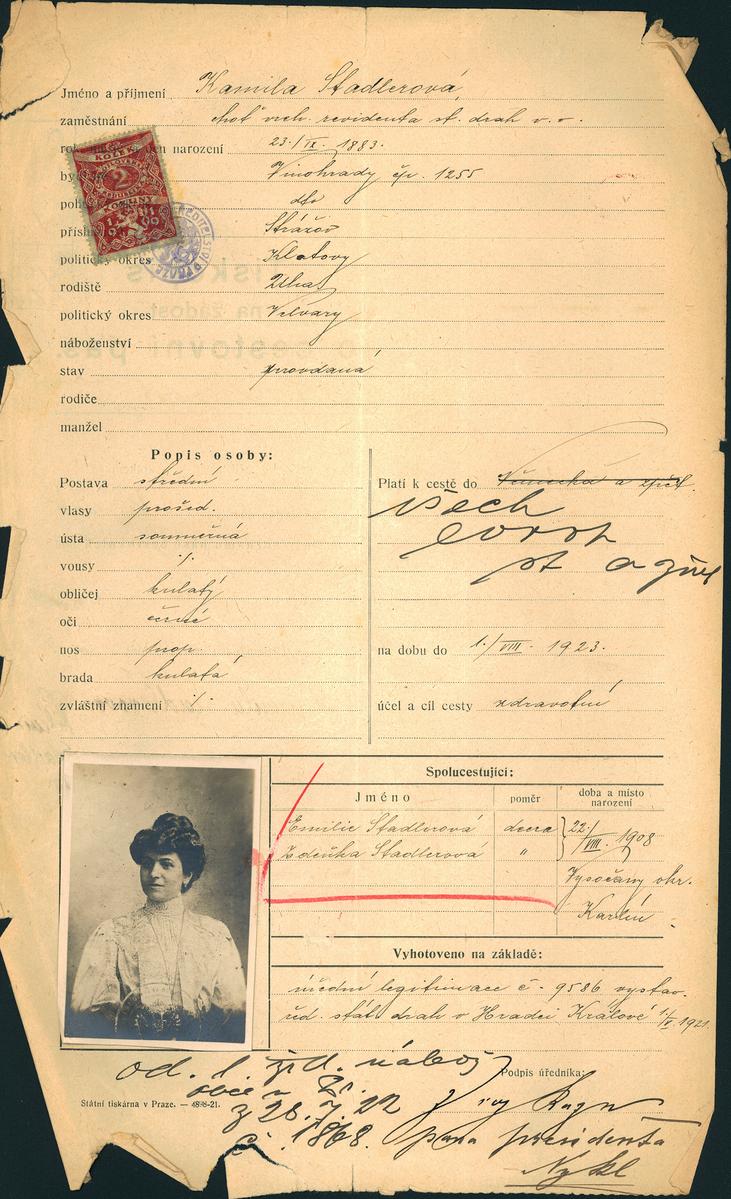 Jméno a příjmení Kamila Stadlerová,
zaměstnání choť vrch. revidenta st. drah v. v.
rok den narození 23./IX. 1883.
by Vinohrady čp. 1255
poli dto
přísl Strážov
politický okres Klatovy
rodiště Lha
politický okres Velvary
náboženství
stav provdaná
rodiče
manžel
KOLEK
2
KORUNY
Popis osoby:
Postava střední
vlasy prošed.
ústa souměrná
vousy ·/.
obličej kulatý
oči černé
nos prop.
brada kulatá
zvláštní znamení ·/.
Platí k cestě do Německa a zpět.
všech
evrop
st a zpět
na dobu do 1./VIII. 1923.
účel a cíl cesty zdravotní
Spolucestující:
Jméno poměr doba a místo narození
Emilie Stadlerová dcera 22./VIII. 1908
Zdeňka Stadlerová "
Vysočany okr.
Karlín
Vyhotoveno na základě:
úřední legitimace č. 9586 vystav.
řed. stát. drah v Hradci Králové 1./V. 1921.
Podpis úředníka:
od. 1.
obce
z 28. 7. 22
č. 1868. pana presidenta
Nykl
Státní tiskárna v Praze. — 4838-21.